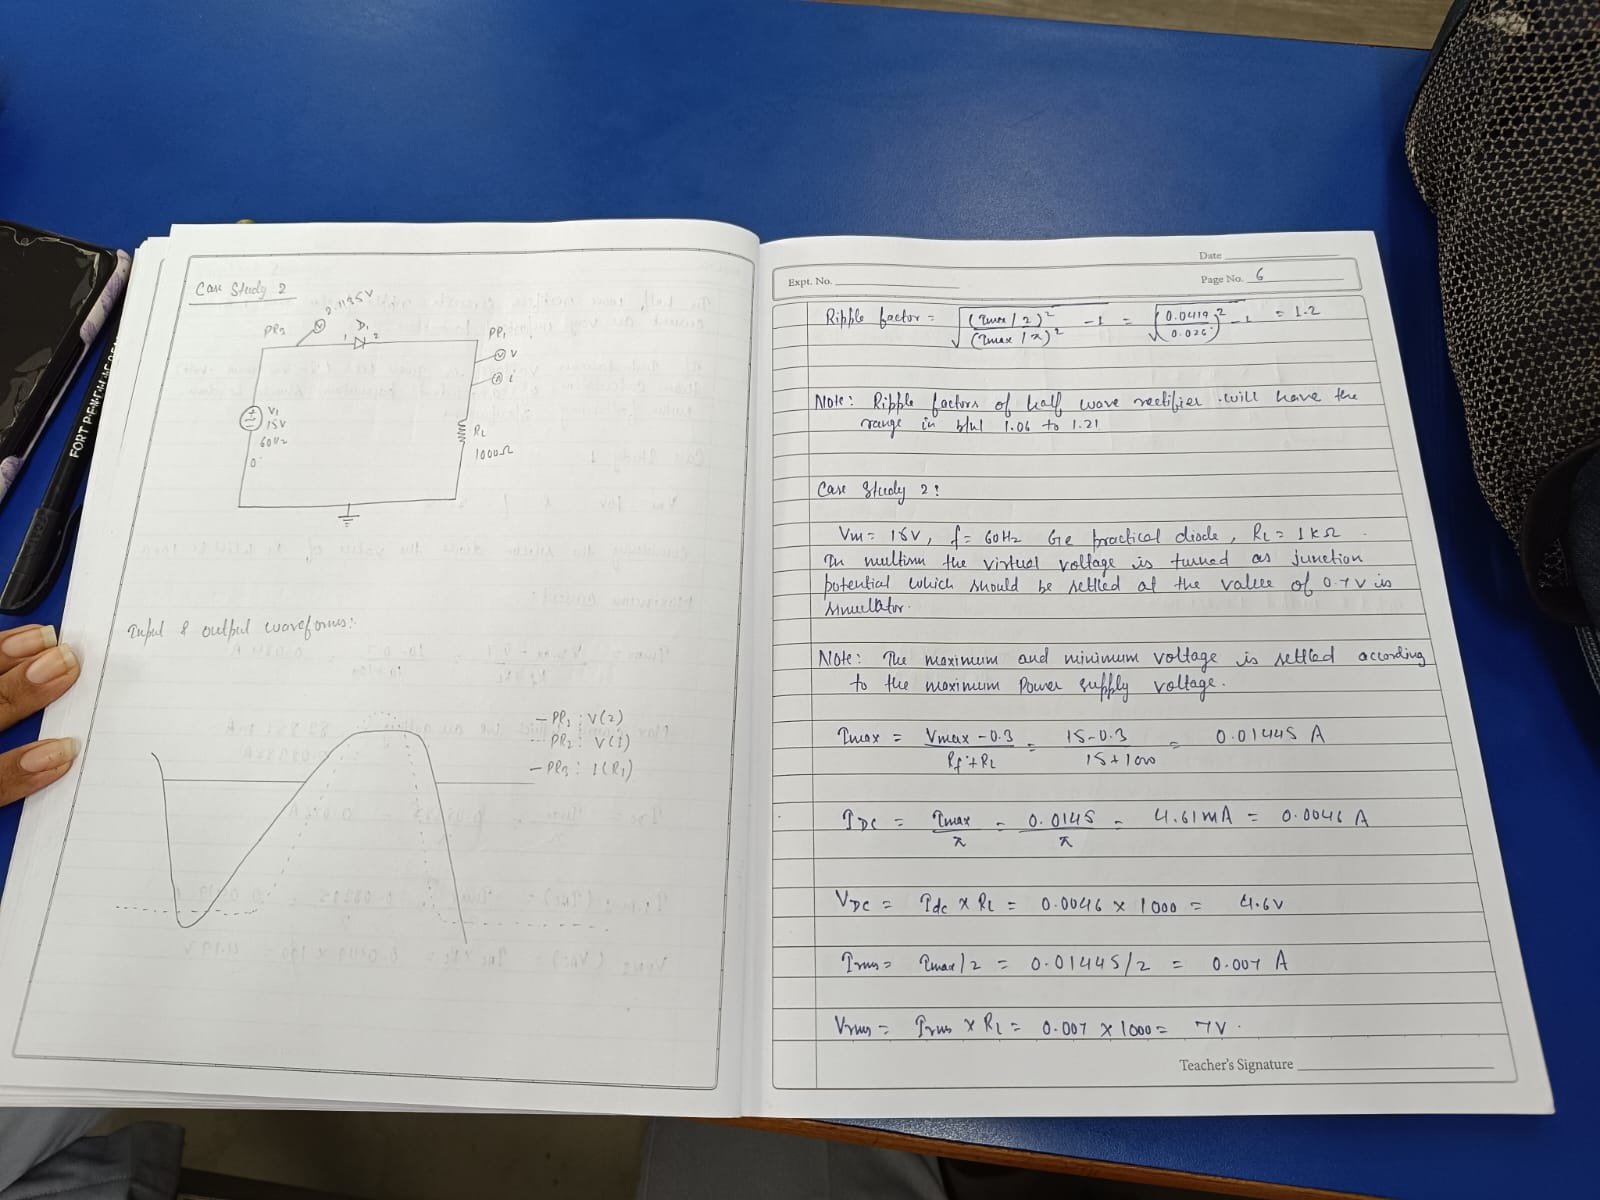 Case Study 2
2.1195V
PR2
D1
1 2
PR1
V
V
A
i
V1
15V
60Hz
0°
RL
1000Ω
Input & output waveforms:-
— PR1 : V(2)
... PR2 : V(1)
— PR3 : I(R1)
FORT PEN
Date
Expt. No.
Page No. 6
Ripple factor = √((Imax/2)² / (Imax/π)² - 1) = √((0.0419 / 0.026)² - 1) = 1.2
Note: Ripple factors of half wave rectifier will have the
range in b/w 1.06 to 1.21
Case Study 2:
Vm = 15V, f = 60Hz Ge practical diode, RL = 1kΩ
In multism the virtual voltage is turned as junction
potential which should be settled at the value of 0.7V is
simullator.
Note: The maximum and minimum voltage is settled according
to the maximum Power supply voltage.
Imax = Vmax - 0.3 / Rf + RL = 15-0.3 / 15+1000 = 0.01445 A
IDC = Imax / π = 0.0145 / π = 4.61mA = 0.0046 A
VDC = Idc × RL = 0.0046 × 1000 = 4.6V
Irms = Imax/2 = 0.01445/2 = 0.007 A
Vrms = Irms × RL = 0.007 × 1000 = 7V.
Teacher's Signature